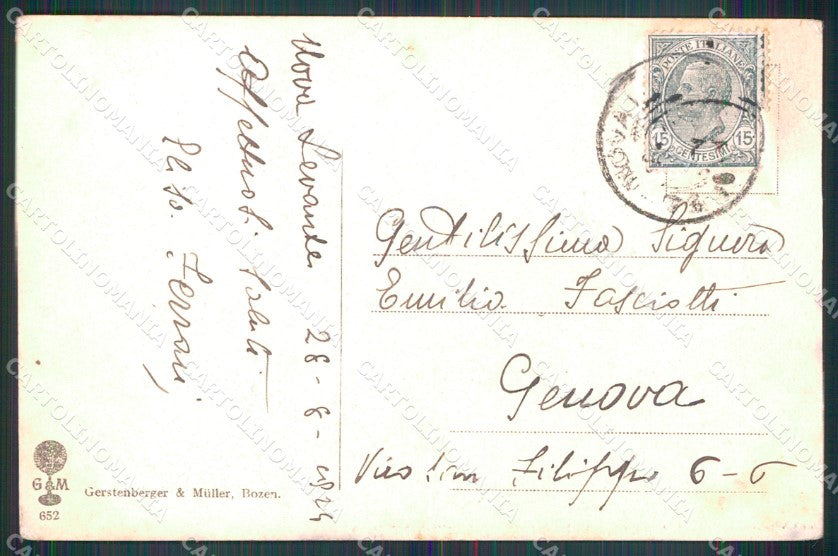 Nova Levante 28-8-1924
Affettuosi saluti
Ferrari
POSTE ITALIANE
15 15
CENTESIMI
Gentilissima Signora
Emilia Fasciotti
Genova
Vico San Filippo 6-6
G M
Gerstenberger & Müller, Bozen.
652
CARTOLINOMANIA